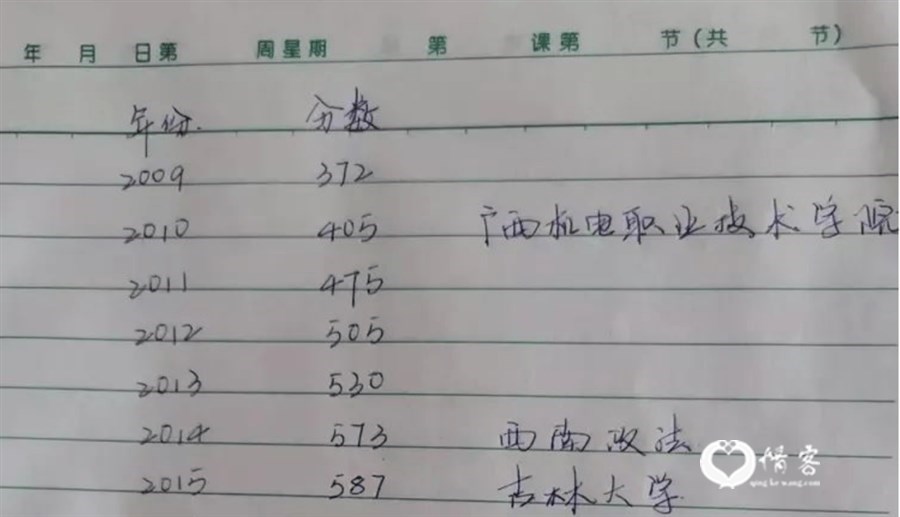 年 月 日第 周星期 第 课第 节(共 节)
年份. 分数
2009 372
2010 405 广西机电职业技术学院
2011 475
2012 505
2013 530
2014 573 西南政法
2015 587 吉林大学
情客
qing ke wang.com